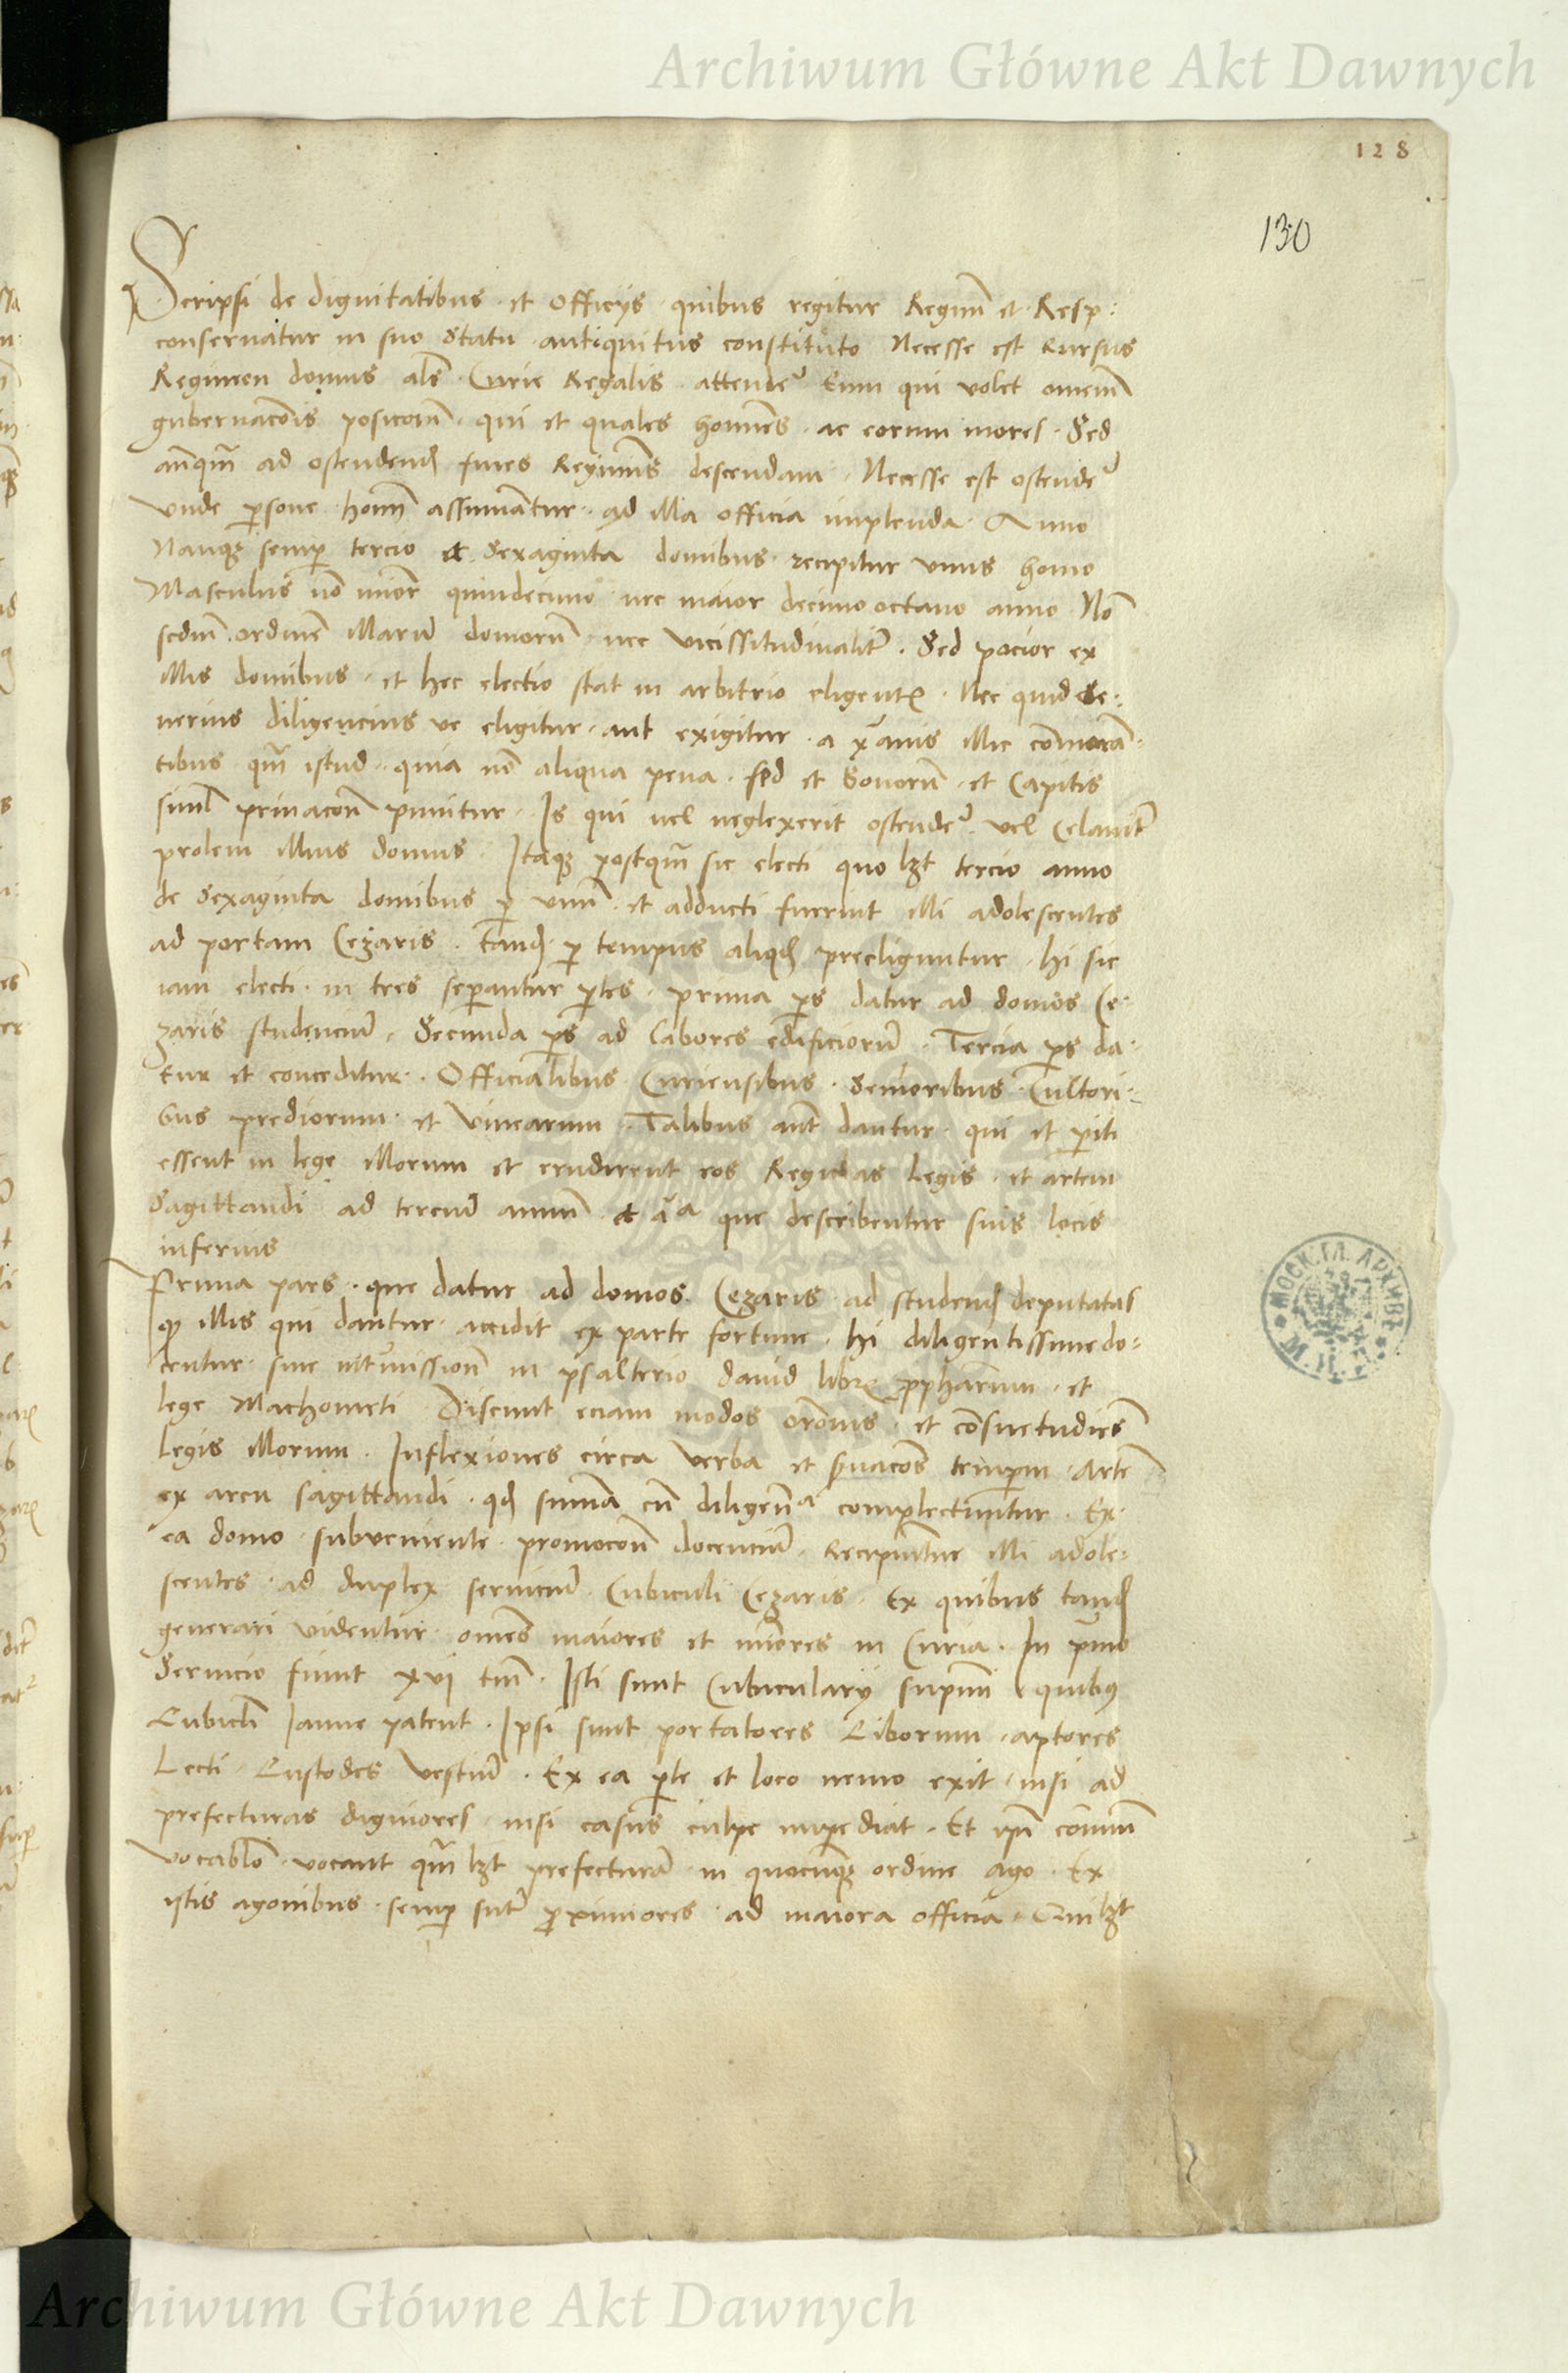 Archiwum Główne Akt Dawnych
128
130
Scripsi de dignitatibus et officijs quibus regitur Regnũ et Resp:
conservatur in suo statu antiquitus constituto Necesse est Rursus
Regimen domus als Curie Regalis attende᷑ Eum qui volet omnem̃
gubernacõis posicionẽ qui et quales homĩes ac eorum mores Sed
anteq̃m ad ostendend fines Regiminis descendam Necesse est ostende᷑
vnde persone homĩ assumãtur ad illa officia implenda Anno
Namq; semp tercio et sexaginta domibus recipitur vnus homo
Masculus nõ minor quindecimo nec maior decimo octavo anno Nõ
scdm ordinẽ illarũ domorũ nec vicissitudinalit᷑ Sed pocior ex
illis domibus et hec electio stat in arbitrio eligentꝫ Nec quid se:
verius diligencius ve eligitur aut exigitur a xp̃ianis illic cõmorã:
tibus q̃m istud quia nõ aliqua pena sed et bonorũ et Capitis
simul privacõe punitur Is qui vel neglexerit ostende᷑ vel celavit᷑
prolem illius domus Itaq; postq̃m sic electi quo lꝫt tercio anno
de sexaginta domibus p vnũ et adducti fuerint illi adolescentes
ad portam Cezaris tand p tempus aliqd preeliguntur hi sic
iam electi in tres separantur ptes prima ps datur ad domos Ce:
zaris studenciũ Secunda ps ad labores edificiorũ Tercia ps da:
tur et conceditur Officialibus Curiensibus Senioribus Cultori:
bus prediorum et vinearum Talibus aut dantur qui et piti
essent in lege illorum et erudirent eos Regulas legis et artem
Sagittandi ad terciũ annũ et ã que describentur suis locis
inferius
Prima pars que datur ad domos Cezaris ad studend deputatas
qꝫ illis qui dantur accidit ex parte fortune hi diligentissime do:
centur sine int᷑missione in psalterio david libris pphetarum et
lege Machometi Discunt eciam modos orõnis et cõsuetudines
legis illorum Inflexiones circa verba et temporum Artẽ
ex arcu sagittandi qd summa cũ diligẽcia complectuntur Ex
ea domo subveniente promocõe docenciũ Recipiuntur illi adole:
scentes ad duplex serviciũ Cubiculi Cezaris Ex quibus tand
generari videntur omẽs maiores et minores in Curia In primo
Servicio fiunt xvj tm̃ Isti sunt Cubicularij supremi quibus
Cubicli Ianue patent Ipsi sunt portatores Ciborum aptores
Lecti Custodes vestiũ Ex ea pte et loco nemo exit nisi ad
prefecturas digniores nisi casus culpe impediat Et ipm̃ cõmuni
vocablo vocant q̃m lꝫt prefecturã in quocunq; ordine Ago Ex
istis agonibus semp sunt pximiores ad maiora officia Cuilꝫt
Archiwum Główne Akt Dawnych